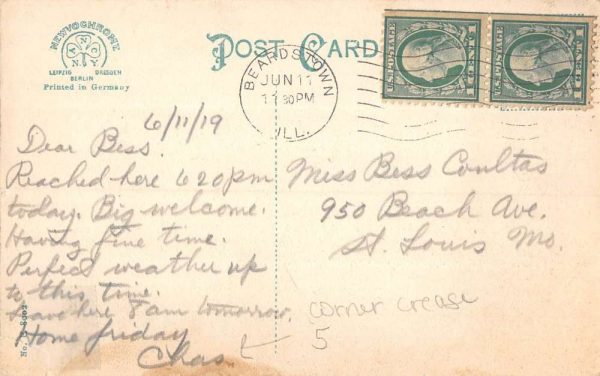 NEWVOCHROME
A N C
N. Y.
LEIPZIG DRESDEN
BERLIN
Printed in Germany
POST CARD
BEARDSTOWN
JUN 11
11 30 PM
ILL.
U.S. POSTAGE
1 CENT 1
U.S. POSTAGE
1 CENT 1
6/11/19
Dear Bess.
Reached here 620pm
today. Big welcome.
Having fine time.
Perfect weather up
to this time.
Leave here 8 am tomorrow.
Home friday
Chas.
Miss Bess Coultas
950 Beach Ave.
St. Louis Mo.
corner crease
5